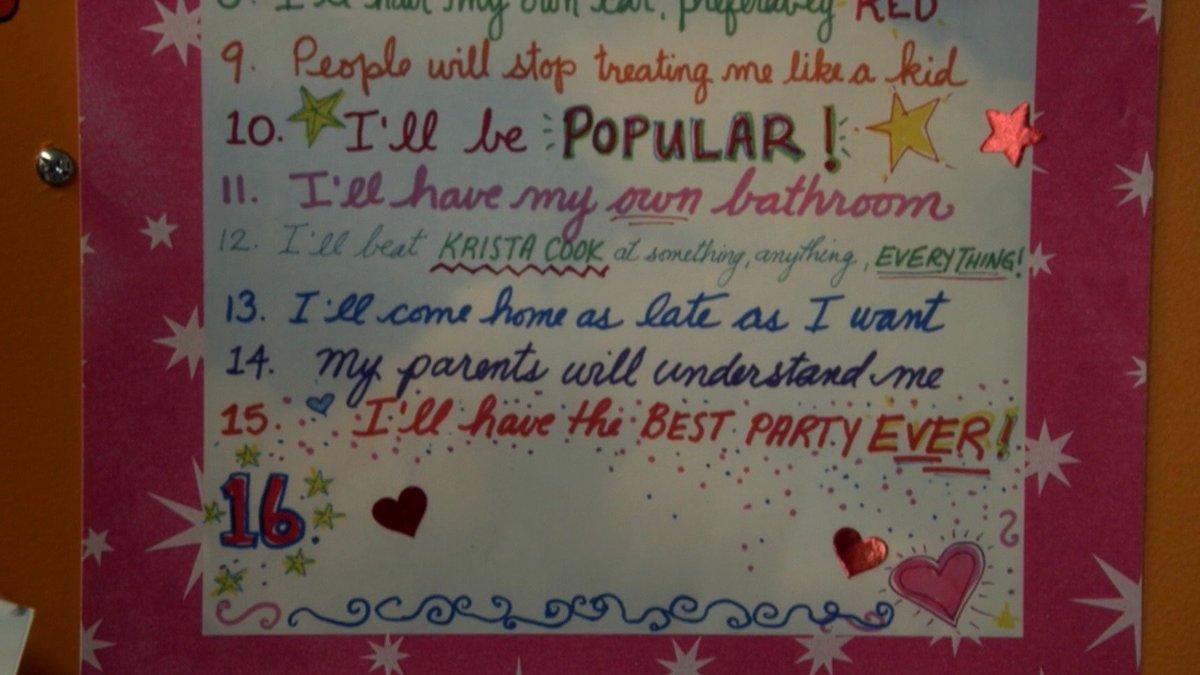 8. I'll have my own car, preferably RED
9. People will stop treating me like a kid
10. I'll be POPULAR!
11. I'll have my own bathroom
12. I'll beat KRISTA COOK at something, anything, EVERYTHING!
13. I'll come home as late as I want
14. My parents will understand me
15. I'll have the BEST PARTY EVER!
16.